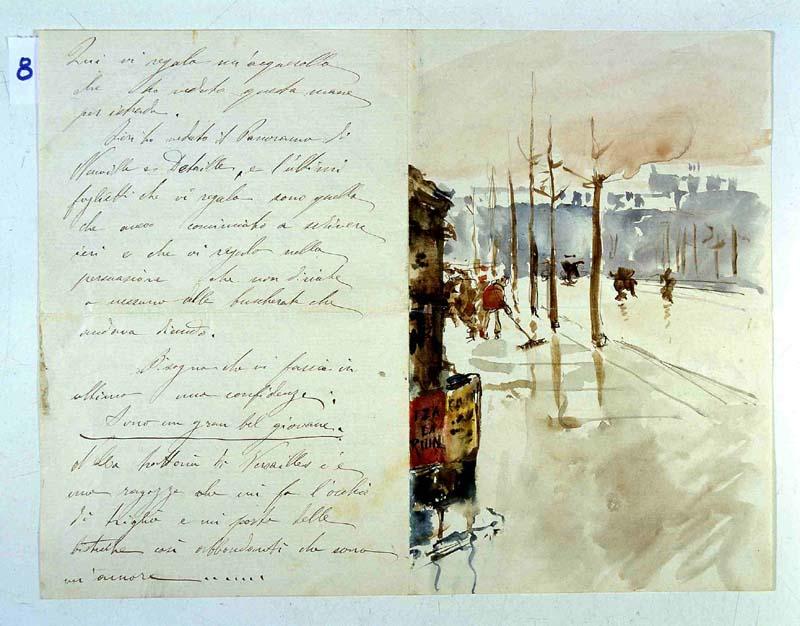 8
Qui vi regalo un'acquerello
che ho veduto questa mane
per istrada.
Ieri ho veduto il Panorama di
Neuville e Detaille, e l'ultimi
foglietti che vi regalo sono quelli
che avevo cominciato a scrivere
ieri e che vi regalo nella
persuasione che non diciate
a nessuno alle che
andava dicendo.
Bisogna che vi faccia in
ultimo una confidenza:
Sono un gran bel giovane.
Alla trattoria di Versailles c'è
una ragazza che mi fa l'occhio
di triglia e mi porta delle
bistecche così abbondanti che sono
un'amore ......